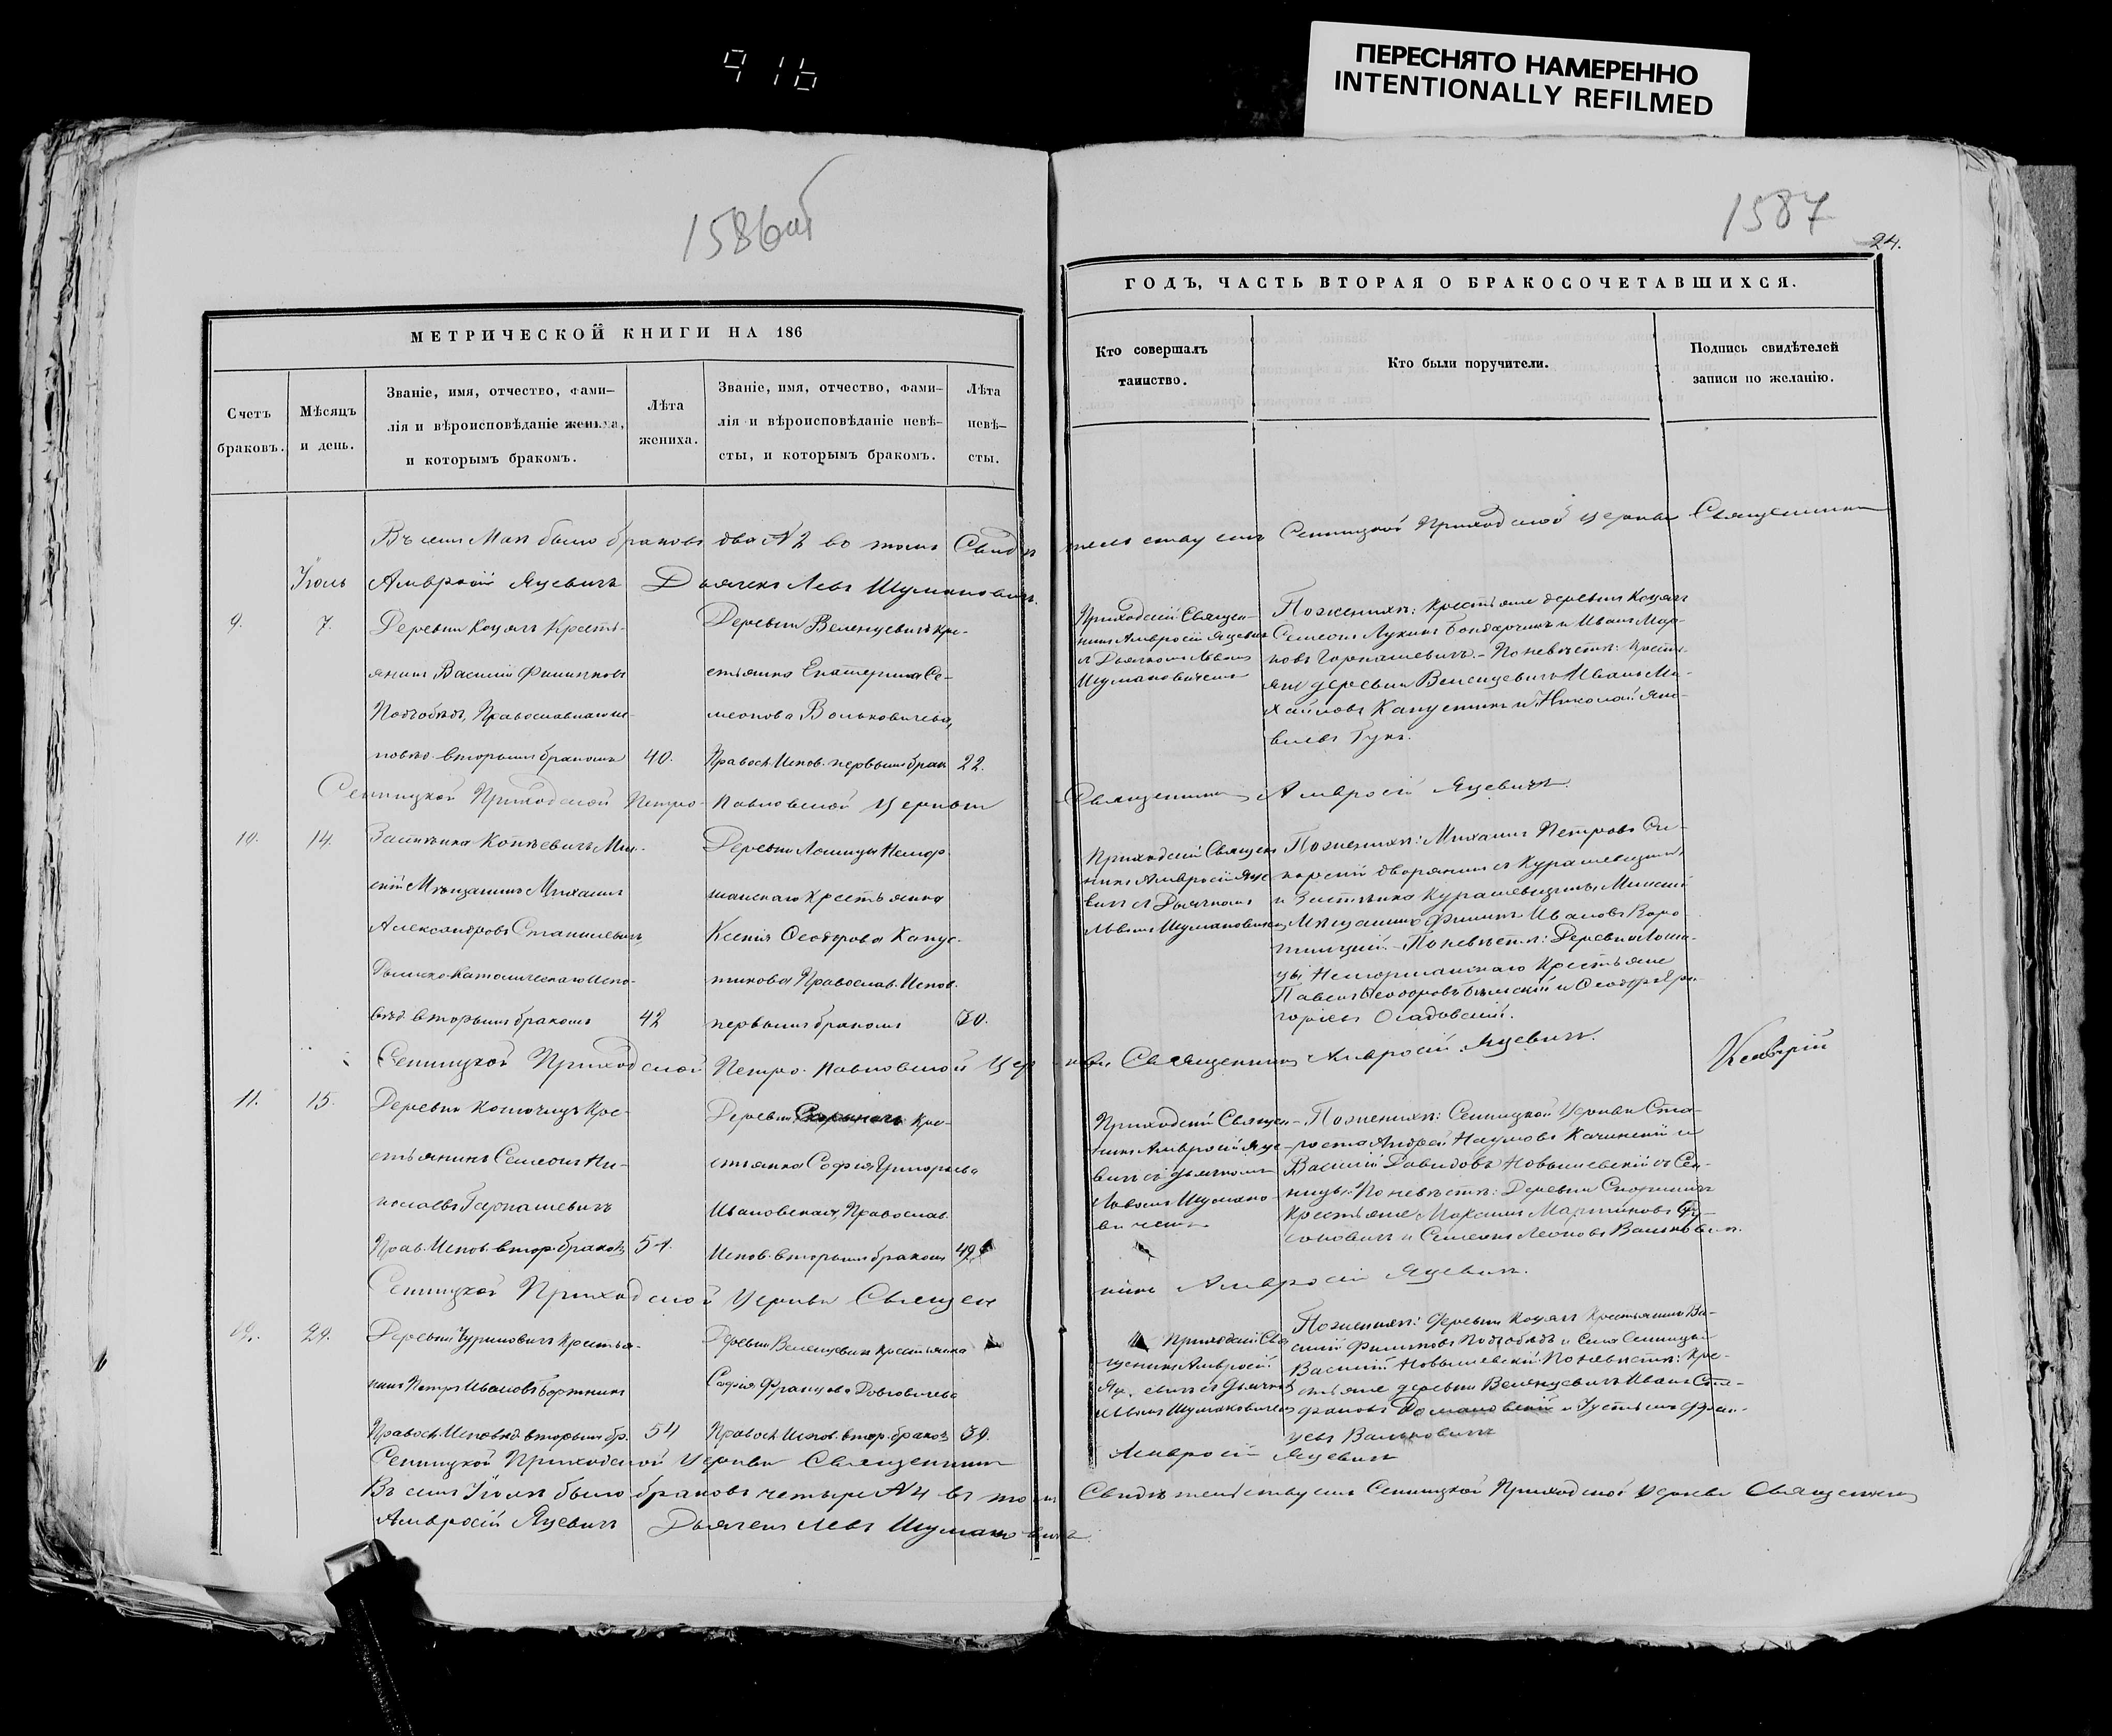 916
ПЕРЕСНЯТО НАМЕРЕННО
INTENTIONALLY REFILMED
1586об
1587
24.
МЕТРИЧЕСКОЙ КНИГИ НА 186
Счетъ браковъ.
Мѣсяцъ и день.
Званіе, имя, отчество, фами-
лія и вѣроисповѣданіе жениха,
и которымъ бракомъ.
Лѣта жениха.
Званіе, имя, отчество, фами-
лія и вѣроисповѣданіе невѣ-
сты, и которымъ бракомъ.
Лѣта невѣ-
сты.
ГОДЪ, ЧАСТЬ ВТОРАЯ О БРАКОСОЧЕТАВШИХСЯ.
Кто совершалъ
таинство.
Кто были поручители.
Подпись свидѣтелей
записи по желанію.
Въ маѣ было браковъ два №2 въ томъ Свидѣтельствуемъ Сеницкой Приходской Церкви Священникъ
Амвросій Яцевичъ Дьячекъ Левъ Шумановичъ.
Іюль
9.
7.
Деревни Коцакъ Кресть-
янинъ Василій Филиповъ
Подгобѣдъ, Православнаго ис-
повѣд. вторымъ бракомъ
40.
Деревни Веленцевичъ Кре-
стьянка Екатерина Се-
меонова Вольковичева,
Правосл. Испов. первымъ брак
22.
Приходскій Священ-
никъ Амвросій Яцевичъ
съ Дьячкомъ Львомъ
Шумановичемъ
По женихѣ: Крестьяне деревни Коцакъ
Семеонъ Лукинъ Бондарчикъ и Иванъ Мар-
ковъ Гарнашевичъ. - По невѣстѣ: Кресть-
яне деревни Веленцевичъ Иванъ Ми-
хайловъ Капустинъ и Николай Яко-
влевъ Гукъ.
Сеницкой Приходской Петро-Павловской Церкви Священникъ Амвросій Яцевичъ.
10.
14.
Застѣнка Котѣевичъ Мин-
скій Мѣщанинъ Михаилъ
Александровъ Станилевичъ,
Римско-Католическаго Испо-
вѣд. вторымъ бракомъ
42
Деревни Лошицы
Крестьянка
Ксенія Ѳеодорова Капус-
тикова Православ. Испов.
первымъ бракомъ
30.
Приходскій Священ
никъ Амвросій Яце
вичъ съ Дьячкомъ
Львомъ Шумановичемъ
По женихѣ: Михаилъ Петровъ Си-
корскій дворянинъ съ Курашевщины
и Застѣнка Курашевщины Минскій
Мѣщанинъ Филипъ Ивановъ Коро-
тицкій. - По невѣстѣ: Деревни Лоши-
цы Крестьяне
Павелъ Ѳеодоровъ Бѣлскій и Ѳеодоръ Гри-
горіевъ Осадовскій.
Сеницкой Приходской Петро-Павловской Церкви Священникъ Амвросій Яцевичъ.
11.
15.
Деревни Копочицъ Кре-
стьянинъ Семеонъ Ни-
колаевъ Гарнашевичъ
Прав. Испов. втор. браком
51.
Деревни Кре-
стьянка Софія Григорьева
Ивановская, Православ.
Испов. вторымъ бракомъ
49
Приходскій Священ-
никъ Амвросій Яце-
вичъ съ дьячкомъ
Львомъ Шумано-
вичемъ
По женихѣ: Сеницкой Церкви Ста-
роста Андрей Наумовъ Качинскій и
Василій Давидовъ Новышевскій съ Се-
ницы. По невѣстѣ: Деревни
Крестьяне Максимъ Мартиновъ
и Семеонъ Леоновъ Вольковичъ.
Сеницкой Приходской Церкви Священникъ Амвросій Яцевичъ.
12.
29.
Деревни Чуриловичъ Крестья-
нинъ Петръ Ивановъ Бортникъ
Правосл. Исповѣд вторымъ бр.
54
Деревни Веленцевичъ Крестьянка
Софія Францова Довговичева
Правосл. Испов. втор. браком
39.
Приходскій Свя
щенникъ Амвросій
Яцевичъ съ Дьячком
Львомъ Шумановичем
По женихѣ: Деревни Коцакъ Крестьянинъ Ва-
силій Филиповъ Подгобѣдъ и Села Сеницы
Василій Новышевскій. По невѣстѣ: Кре-
стьяне деревни Веленцевичъ Иванъ Сте-
фановъ Домановскій и Устинъ Фран-
цевъ Вальковичъ
Сеницкой Приходской Церкви Священникъ Амвросій Яцевичъ
Въ Іюлѣ было браковъ четыре №4 въ томъ Свидѣтельствуемъ Сеницкой Приходской Церкви Священникъ
Амвросій Яцевичъ Дьячекъ Левъ Шумановичъ